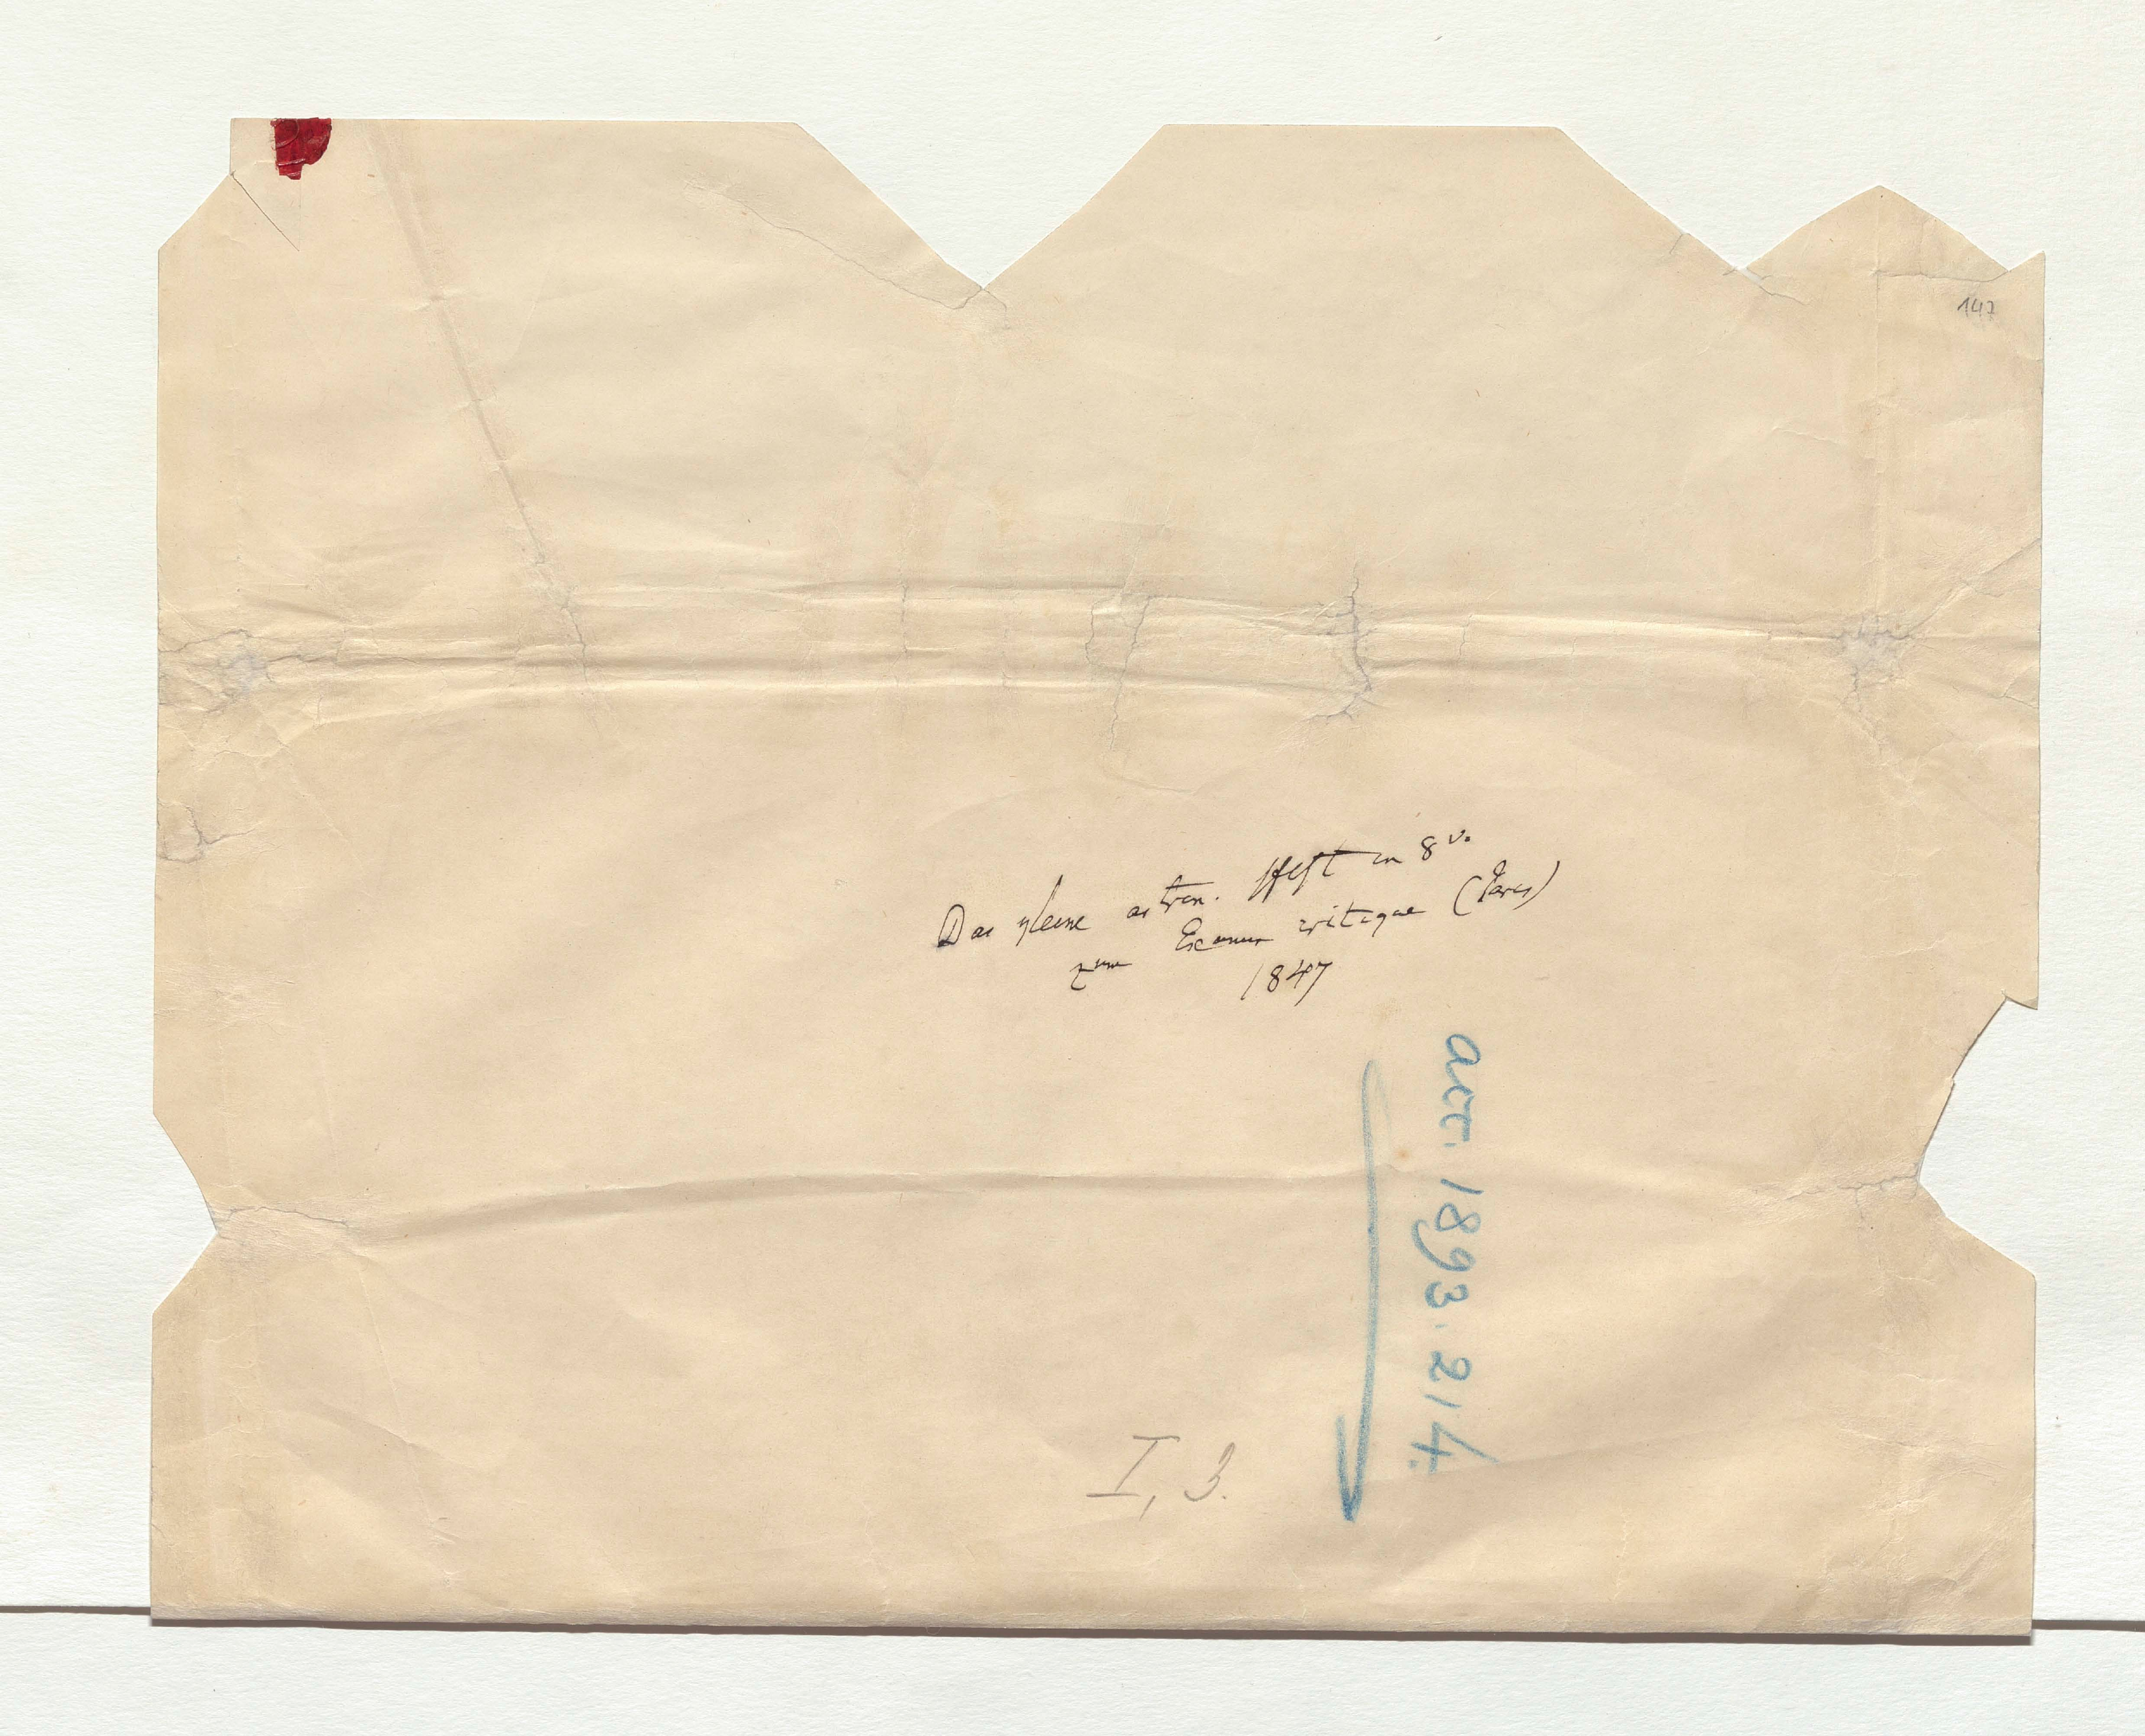 147
Das kleine astron. Heft in 8vo
zum Examen critique (Paris)
1847
acc. 1893. 214.
I, 3.